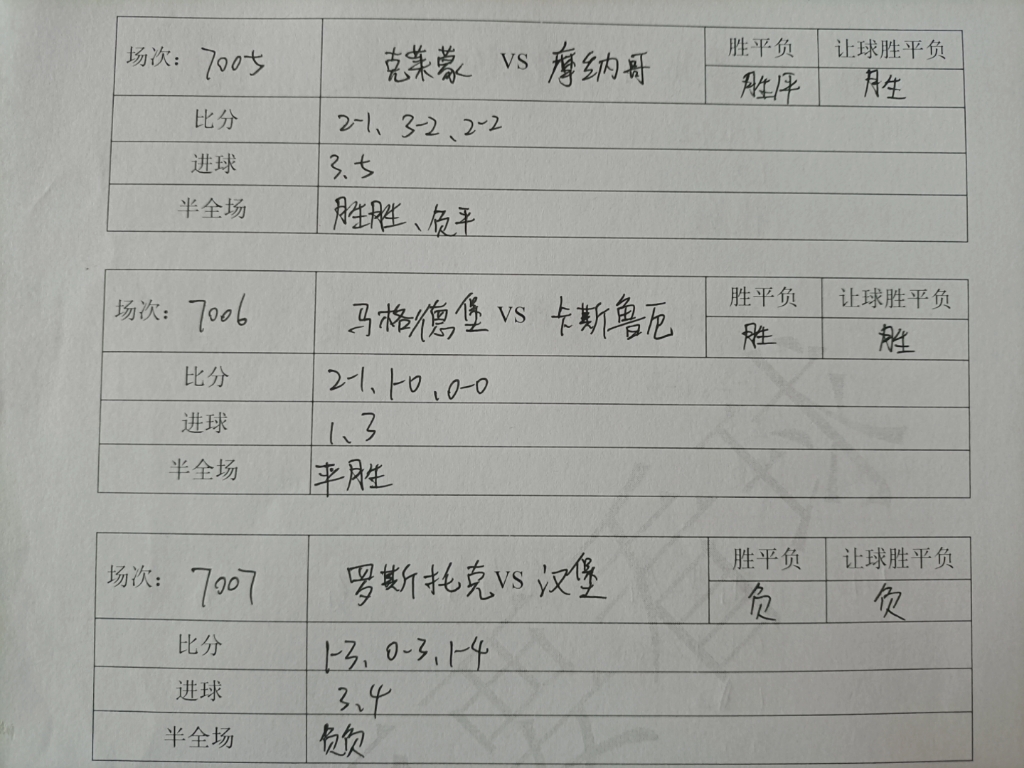 场次：7005 克莱蒙 VS 摩纳哥 胜平负 让球胜平负
胜/平 胜
比分 2-1、3-2、2-2
进球 3、5
半全场 胜胜、负平
场次：7006 马格德堡 VS 卡斯鲁厄 胜平负 让球胜平负
胜 胜
比分 2-1、1-0、0-0
进球 1、3
半全场 平胜
场次：7007 罗斯托克 VS 汉堡 胜平负 让球胜平负
负 负
比分 1-3、0-3、1-4
进球 3、4
半全场 负负